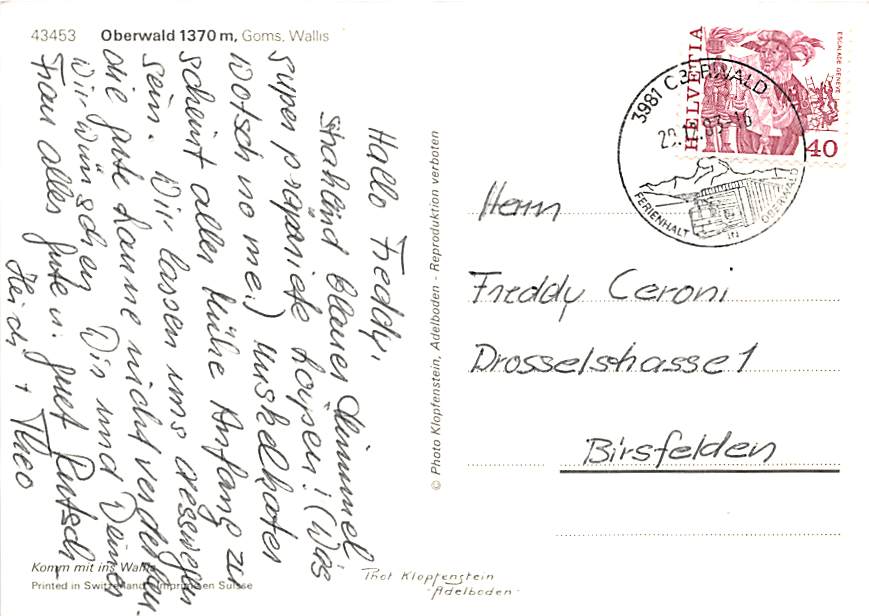 43453 Oberwald 1370 m, Goms, Wallis
Hallo Freddy,
strahlend blauer Himmel
super präparierte Loipen! (Was
wotsch no me.) Muskelkater
scheint aller Mühe Anfang zu
sein. Wir lassen uns deswegen
die gute Laune nicht verderben.
Wir wünschen Dir und Deiner
Frau alles gute u. guet Rutsch
Heidi + Theo
Komm mit ins Wallis
Printed in Switzerland Imprimé en Suisse
© Photo Klopfenstein, Adelboden - Reproduktion verboten
Phot Klopfenstein
-Adelboden-
HELVETIA
ESCALADE GENÈVE
40
3981 OBERWALD
83-16
FERIENHALT IN OBERWALD
Herrn
Freddy Ceroni
Drosselstrasse 1
Birsfelden